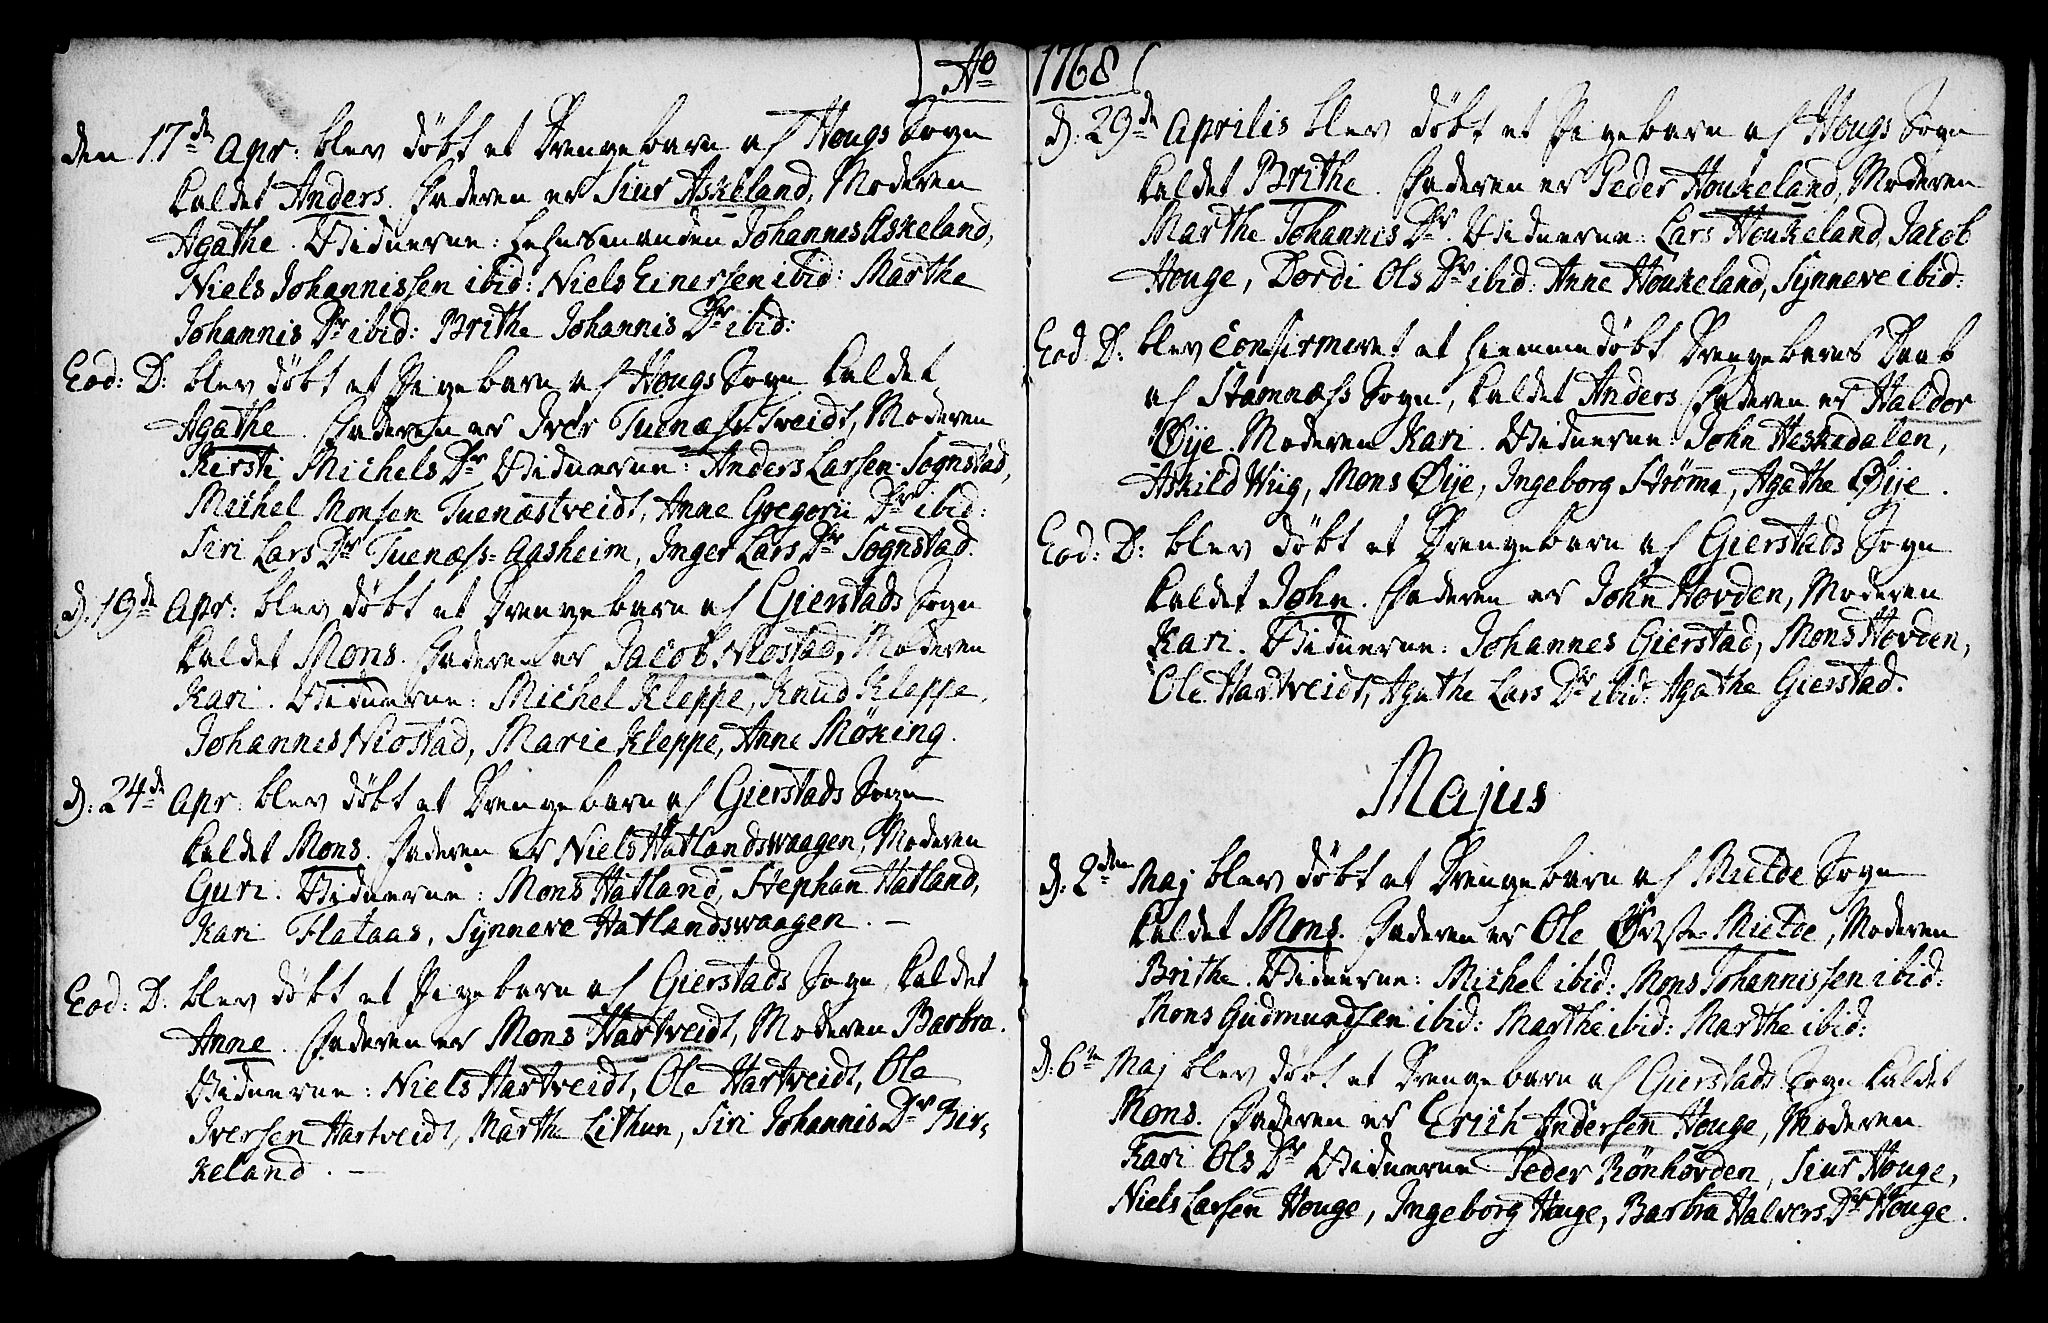 Ao 1768
den 17de Apr: blev døbt et Drengebarn af Hougs Sogn
kaldet Anders. Faderen er Siur Askeland, Moderen
Agathe. Vidnerne: Lehnsmanden Johannes Askeland,
Niels Johannissen ibid: Niels Einersen ibid: Marthe
Johannis Dr ibid: Brithe Johannis Dr ibid:
Eod: D: blev døbt et Pigebarn af Hougs Sogn kaldet
Agathe. Faderen er Iver Tuenæs-Tveidt, Moderen
Kersti Michels Dr Vidnerne: Anders Larsen Sognstad,
Michel Monsen Tuenæstveidt, Anne Gregorii Dr ibid:
Siri Lars Dr Tuenæss-Aasheim, Inger Lars Dr Sognstad.
d. 19de Apr: blev døbt et Drengebarn af Gierstads Sogn
kaldet Mons. Faderen er Jacob Miostad, Moderen
Kari. Vidnerne: Michel Kleppe, Knud Kleppe,
Johannes Miostad, Marie Kleppe, Anne Møking.
d. 24de Apr: blev døbt et Drengebarn af Gierstads Sogn
kaldet Mons. Faderen er Niels Hatlandswaagen, Moderen
Guri. Vidnerne: Mons Hatland, Stephan Hatland,
Kari Flataas, Synneve Hatlandswaagen. —
Eod: D: blev døbt et Pigebarn af Gierstads Sogn, kaldet
Anne. Faderen er Mons Hartveidt, Moderen Barbra.
Vidnerne: Niels Hartveidt, Ole Hartveidt, Ole
Iversen Hartveidt, Marthe Lithun, Siri Johannis Dr Bir-
keland. —
d. 29de Aprilis blev døbt et Pigebarn af Hougs Sogn
kaldet Brithe. Faderen er Peder Houkeland, Moderen
Marthe Johannis Dr Vidnerne: Lars Houkeland, Jacob
Houge, Dordi Ols Dr ibid: Anne Houkeland, Synneve ibid:
Eod. D: blev Confirmeret et hiemmedøbt Drengebarns Daab
af Stamnæss Sogn, kaldet Anders Faderen er Haldor
Øije. Moderen Kari. Vidnerne: John Heskedalen,
Askild Wiig, Mons Øije, Ingeborg Strømme, Agathe Øije.
Eod: D: blev døbt et Drengebarn af Gierstads Sogn
kaldet John. Faderen er John Hovden, Moderen
Kari. Vidnerne: Johannes Gierstad, Mons Hovden,
Ole Hartveidt, Agathe Lars Dr ibid: Agathe Gierstad.
Majus
d. 2den Maj blev døbt et Drengebarn af Mielde Sogn
kaldet Mons. Faderen er Ole Øvste-Mielde, Moderen
Brithe. Vidnerne: Michel ibid: Mons Johannissen ibid:
Mons Gudmundsen ibid: Marthe ibid: Marthe ibid:
d. 6te Maj blev døbt et Drengebarn af Gierstads Sogn kaldet
Mons. Faderen er Erich Andersen Houge, Moderen
Kari Ols Dr Vidnerne Peder Rønhovden, Siur Houge,
Niels Larsen Houge, Ingeborg Houge, Barbra Halvers Dr Houge.